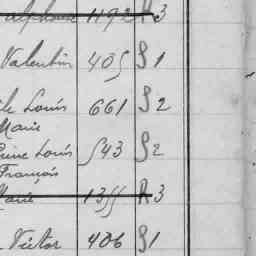 Alphonse 1192 R 3
Valentin 405 S 1
Louis 661 S 2
Marie
Louis 543 S 2
François
Marie 1355 R 3
Victor 406 S 1